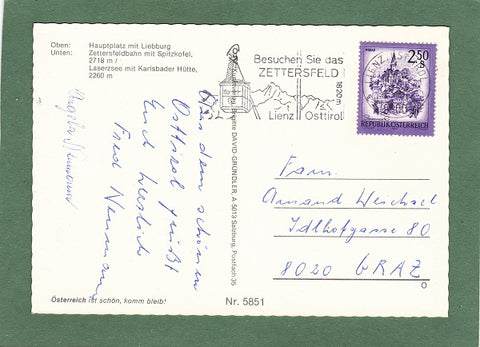 Oben: Hauptplatz mit Liebburg
Unten: Zettersfeldbahn mit Spitzkofel,
2718 m /
Laserzsee mit Karlsbader Hütte,
2260 m
Besuchen Sie das
ZETTERSFELD
1820 m
Lienz Osttirol
2.50
REPUBLIK ÖSTERREICH
LIENZ, OSTTIROL
Aus dem schönen
Osttirol grüßt
Euch herzlich
Fred Neumann
DAVID-GRÜNDLER, A-5013 Salzburg, Postfach 35
Fam.
Amand Weichsel
Idlhofgasse 80
8020 GRAZ
Österreich ist schön, komm bleib!
Nr. 5851